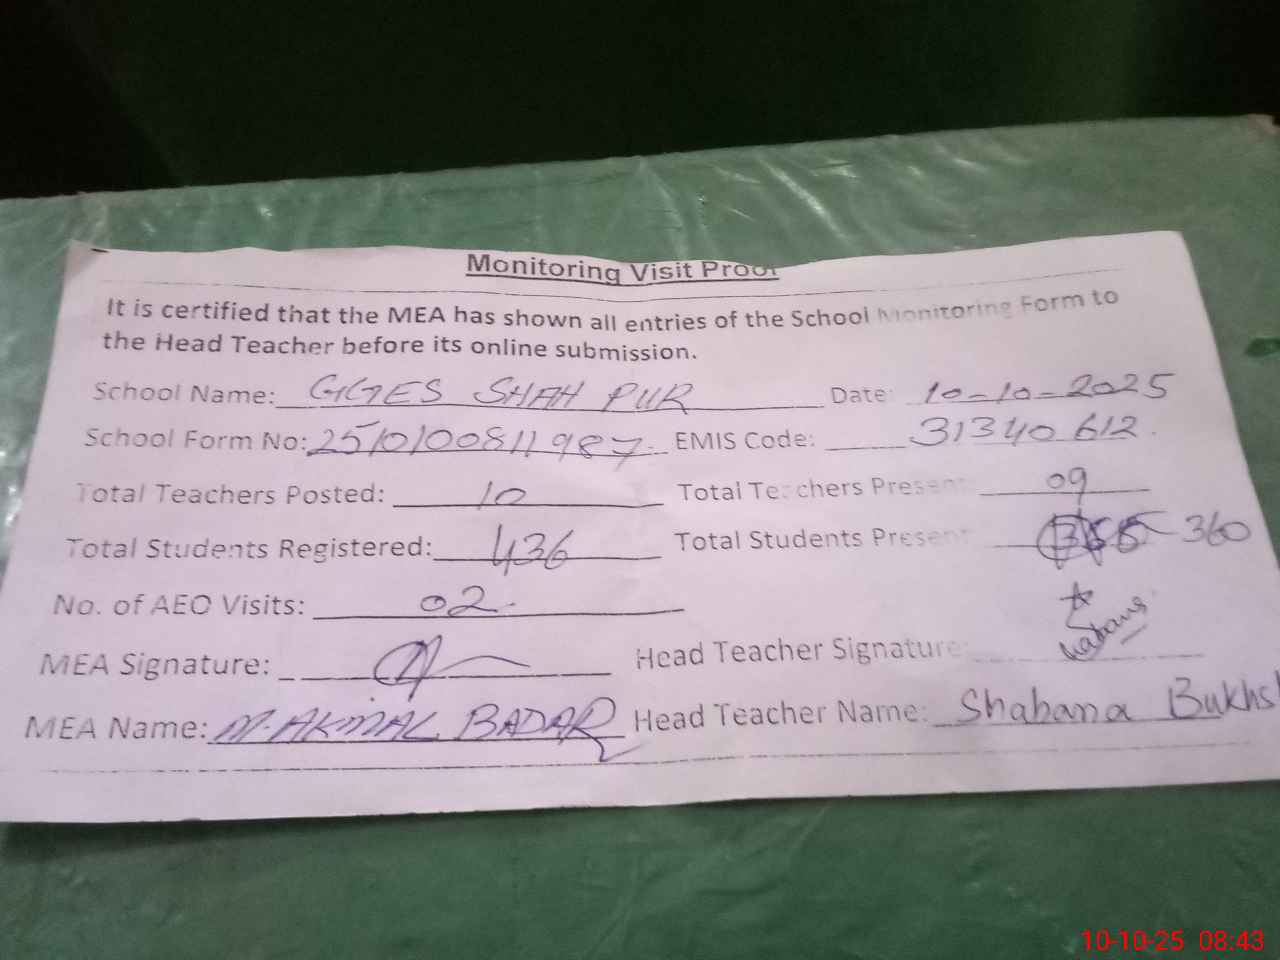 Monitoring Visit Proof
It is certified that the MEA has shown all entries of the School Monitoring Form to
the Head Teacher before its online submission.
School Name: GGES SHAH PUR Date: 10-10-2025
School Form No: 2510100811987. EMIS Code: 31340612.
Total Teachers Posted: 10 Total Teachers Present: 09
Total Students Registered: 436 Total Students Present: 360
No. of AEO Visits: 02.
MEA Signature: Head Teacher Signature:
MEA Name: M. AKMAL BADAR Head Teacher Name: Shabana Bukhsh
10-10-25 08:43